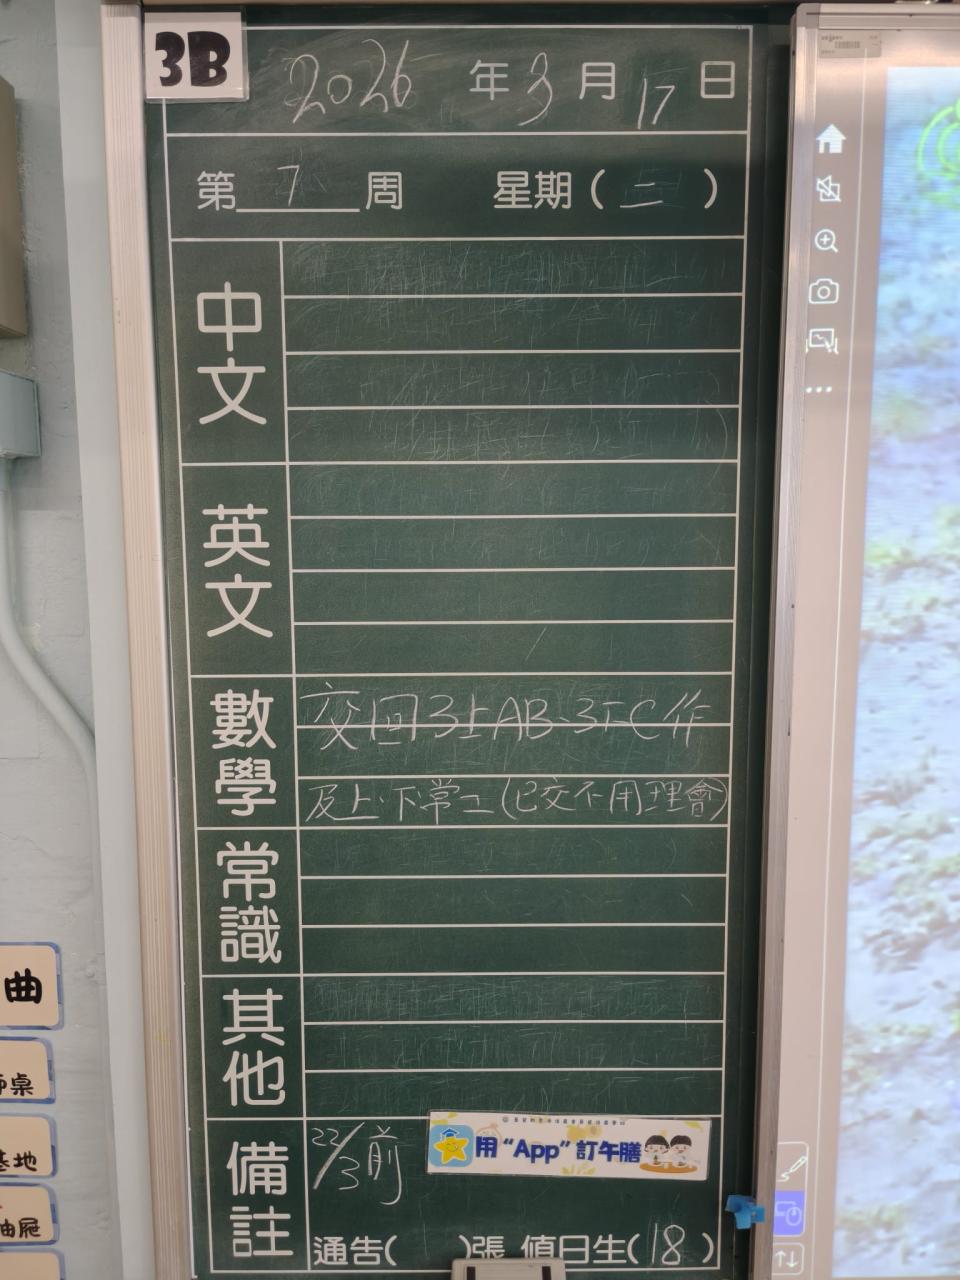 3B
2026 年 3 月 17 日
第 7 周 星期(二)
中文
英文
數學
交回3上AB、3下C作
及上、下常工(已交不用理會)
常識
其他
備註
22/3前
用“App”訂午膳
通告( )張 值日生(18)
曲
桌
基地
油屍